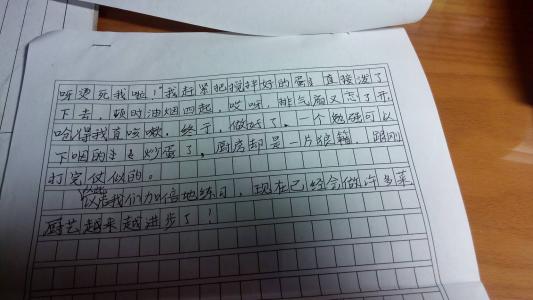 呀烫死我啦！"我赶紧把搅拌好的蛋 直接泼了
下去，顿时油烟四起，哎呀，排气扇又忘了开
呛得我直咳嗽，终于，做好了。一个勉强可以
下咽的 炒蛋了。厨房却是一片狼籍，跟刚
打完仗似的。
我们加倍地练习，现在已经会做许多菜
厨艺越来越进步了！